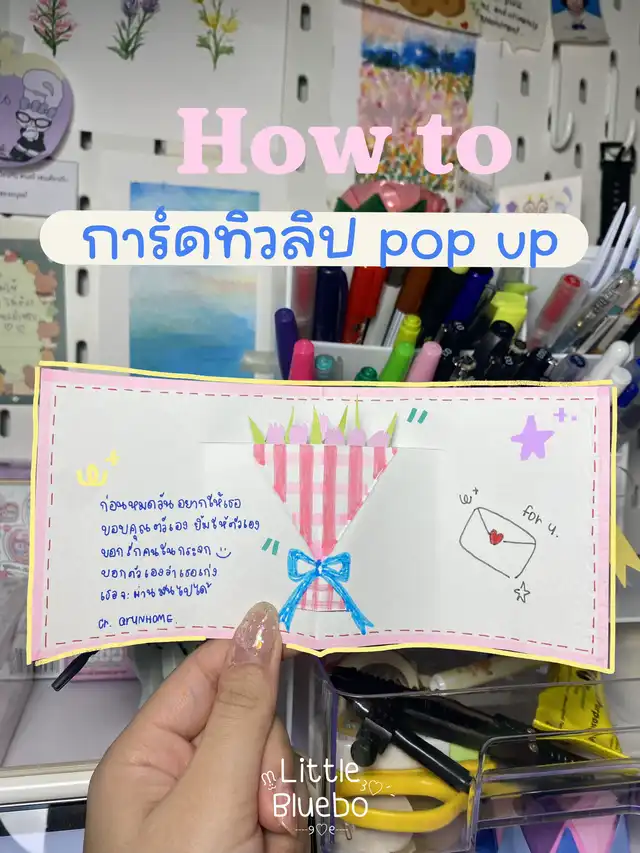 How to
การ์ดทิวลิป pop up
ก่อนหมดวัน อยากให้เธอ
ขอบคุณตัวเอง ยิ้มให้ตัวเอง
บอกรักคนในกระจก
บอกตัวเองว่าเธอเก่ง
เธอจะผ่านมันไปได้
cr. QRUNHOME.
for u.
Little
Bluebo